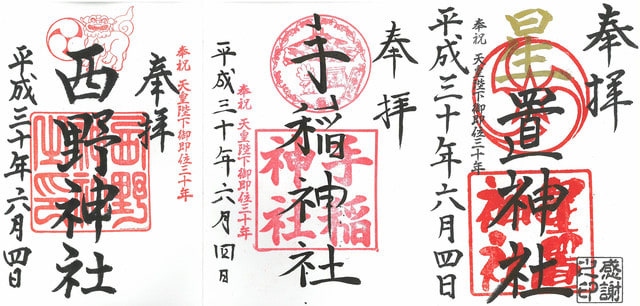 奉拝
奉祝 天皇陛下御即位三十年
西野神社
平成三十年六月四日
奉拝
奉祝 天皇陛下御即位三十年
手稲神社
手稲神社
平成三十年六月四日
奉拝
星置神社
奉祝 天皇陛下御即位三十年
平成三十年六月四日
感謝